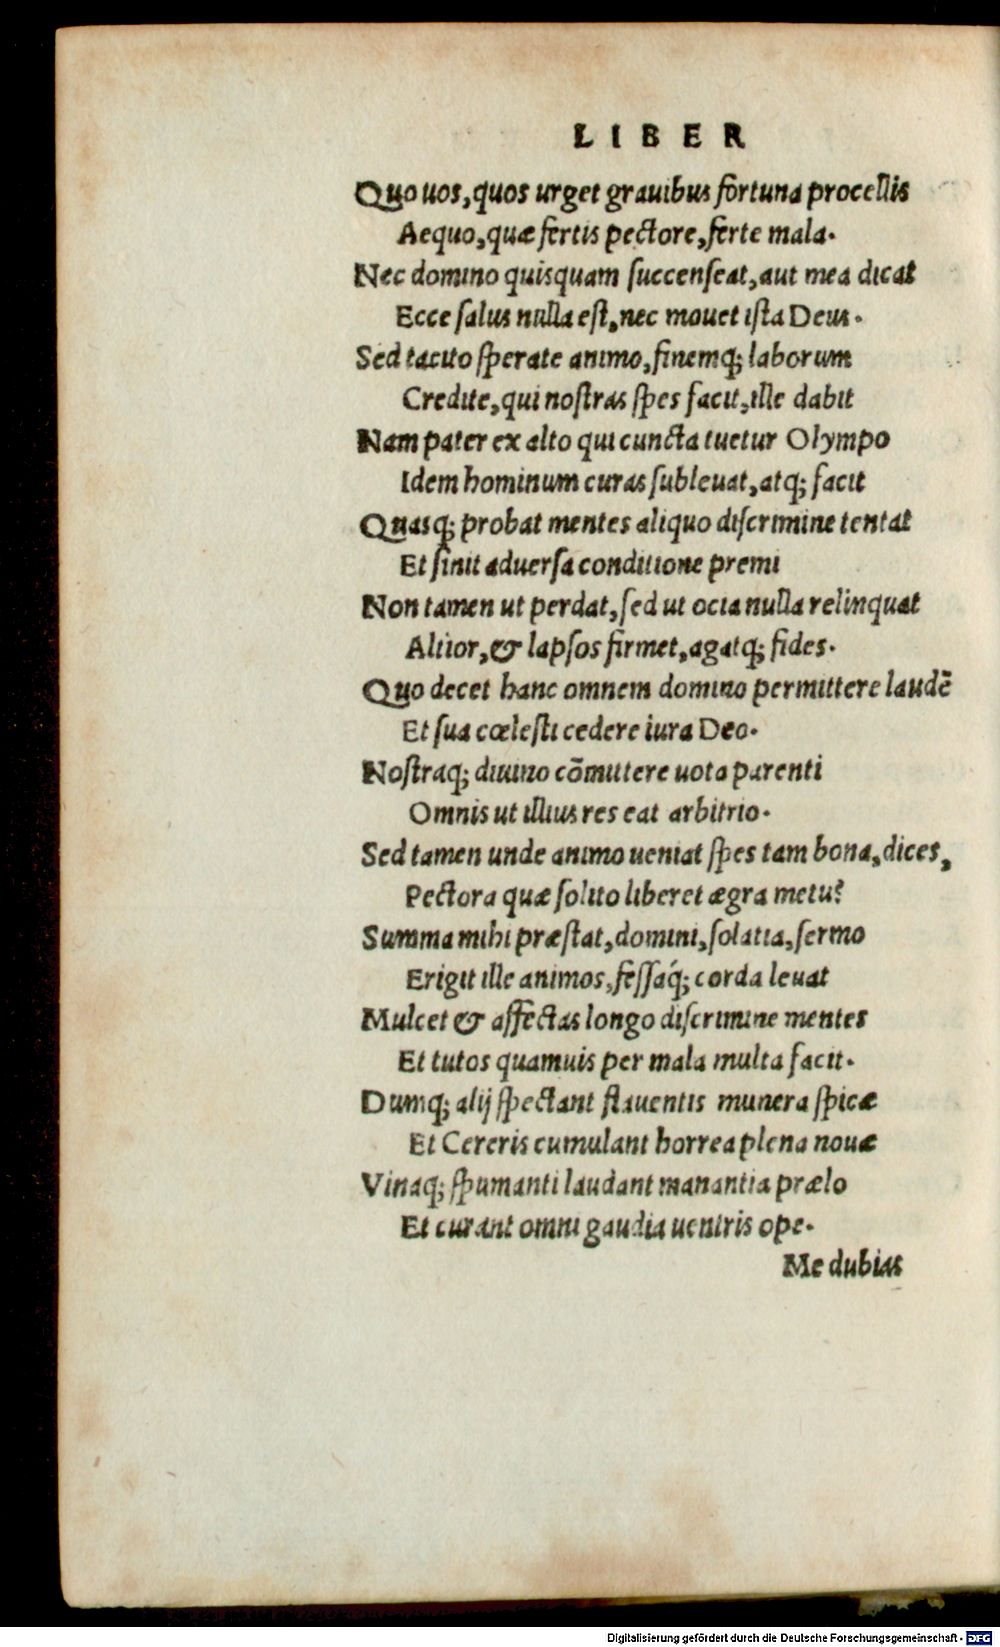 LIBER
Quo uos, quos urget grauibus fortuna procellis
Aequo, quæ fertis pectore, ferte mala.
Nec domino quisquam succenseat, aut mea dicat
Ecce salus nulla est, nec mouet ista Deus.
Sed tacito sperate animo, finemq; laborum
Credite, qui nostras spes facit, ille dabit
Nam pater ex alto qui cuncta tuetur Olympo
Idem hominum curas subleuat, atq; facit
Quasq; probat mentes aliquo discrimine tentat
Et sinit aduersa conditione premi
Non tamen ut perdat, sed ut ocia nulla relinquat
Altior, & lapsos firmet, agatq; fides.
Quo decet hanc omnem domino permittere laudē
Et sua cœlesti cedere iura Deo.
Nostraq; diuino cōmittere uota parenti
Omnis ut illius res eat arbitrio.
Sed tamen unde animo ueniat spes tam bona, dices,
Pectora quæ solito liberet ægra metu?
Summa mihi præstat, domini, solatia, sermo
Erigit ille animos, fessáq; corda leuat
Mulcet & affectas longo discrimine mentes
Et tutos quamuis per mala multa facit.
Dumq; alij spectant flauentis munera spicæ
Et Cereris cumulant horrea plena nouæ
Vinaq; spumanti laudant manantia prælo
Et curant omni gaudia uentris ope.
Me dubias
Digitalisierung gefördert durch die Deutsche Forschungsgemeinschaft - DFG